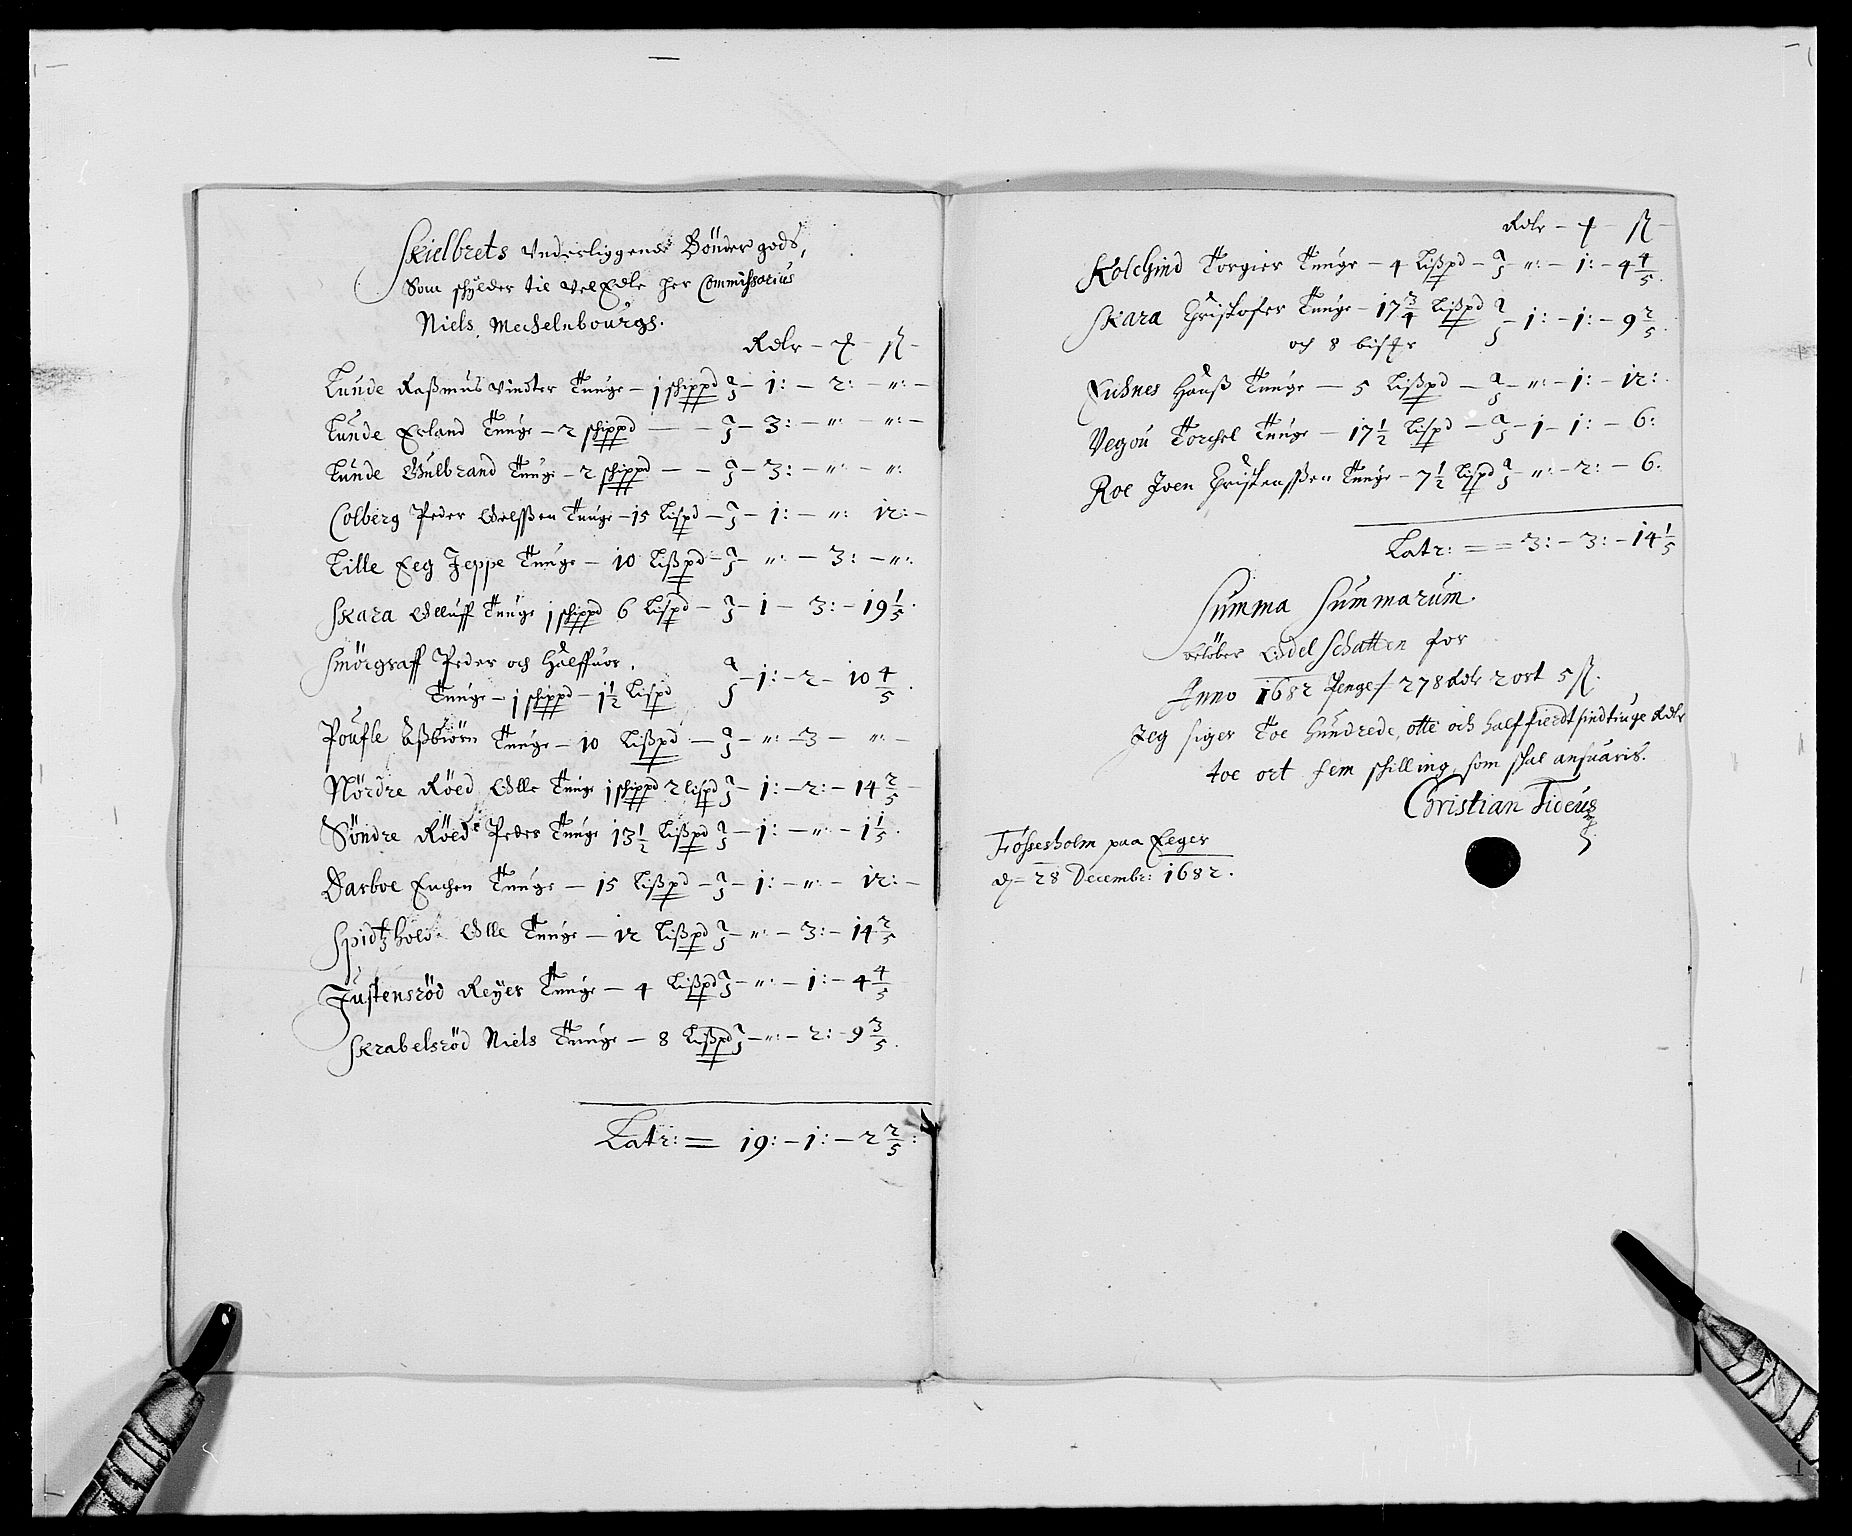 Skielbrets Underliggende Bönder gods,
Som schÿlder til Vel Edle her Commissarius
Niels Mechelnbourgs.
Rdlr – ort – ß –
Lunde Raßmus Vindter Tunge – 1 schippd – 1: – 2: – „: –
Lunde Erland Tunge – 2 schippd – – 3: – „: – „: –
Lunde Gulbrand Tunge – 2 schippd – – 3: – „: – „:
Colberg Peder Oelßen Tunge – 15 Lispd – 1: – „: 12: –
Lille Eeg Jeppe Tunge – 10 Lißpd – „: – 3: – „:
Skara Olluff Tunge 1 schippd 6 Lispd – 1 – 3: – 19 1/5.
Smörgraff Peder och Halffuor.
Tunge – 1 schippd – 1 1/2 Lispd – 1: – 2 – 10 4/5.
Poufle Eßbiörn Tunge – 10 Lißpd – „: – 3 – „: –
Nördre Röed Olle Tunge 1 schippd 2 lispd – 1: – 2: – 14 2/5 –
Söndre Röed Peder Tunge 13 1/2 Lißpd – 1: – „: – 1 1/5.
Darboe Enchen Tunge – 15 Lißpd – 1: – „: – 12: –
Spidtzhold Olle Tunge – 12 Lißpd – „: – 3: – 14 2/5
Justensröd Reÿer Tunge – 4 Lißpd – „: – 1: – 4 4/5
Skrabelsröd Niels Tunge – 8 Lißpd – „: – 2: – 9 3/5.
Latr: = 19: – 1: – 2 2/5:
Rdlr – ort – ß –
Kolchind Torgier Tunge – 4 Lißpd – „: – 1: – 4 4/5.
Skara Christofer Tunge – 17 3/4 Lißpd – 1: – 1: – 9 2/5.
och 8 bis
Hanß Tunge – 5 Lißpd – „: – 1: – 12:
Vegou Torchel Tunge – 17 1/2 Lispd – 1 – 1: – 6:
Roe Joen Christenßen Tunge – 7 1/2 Lispd – „: – 2: – 6.
Latr: = = 3: – 3: – 14 1/5
Summa Summarum.
belöber Odel Schatten for
Anno 1682 Penge 278 Rdlr 2 ort 5 ß.
Jeg siger Toe Hundrede, otte och halffierdtsindtiuge Rdlr
toe ort fem schilling, som skal ansuaris.
Christian Tideus
Fössesholm paa Eeger
d. 28 Decembr: 1682.